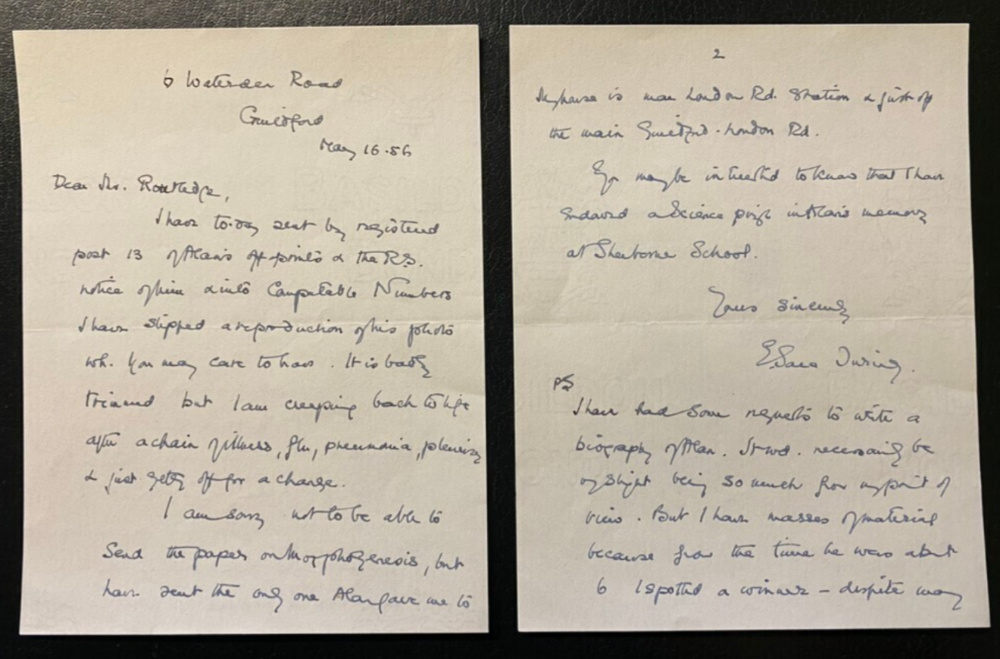 6 Waterden Road
Guildford
May 16.56
Dear Mr. Routledge,
I have to-day sent by registered
post 13 of Alan's off-prints & the R.S.
notice of him & into Computable Numbers
I have slipped a reproduction of his photo
wh. you may care to have. It is badly
trimmed but I am creeping back to life
after a chain of illness, flu, pneumonia, pleurisy
& just getting off for a change.
I am sorry not to be able to
send the paper on Morphogenesis, but
have sent the only one Alan gave me to
2
My house is near London Rd. Station & just off
the main Guildford-London Rd.
You may be interested to know that I have
endowed a Science prize in Alan's memory
at Sherborne School.
Yours sincerely
E. Sara Turing.
PS
I have had some requests to write a
biography of Alan. It wd. necessarily be
being so much from my point of
view. But I have masses of material
because from the time he was about
6 I spotted a winner – despite many